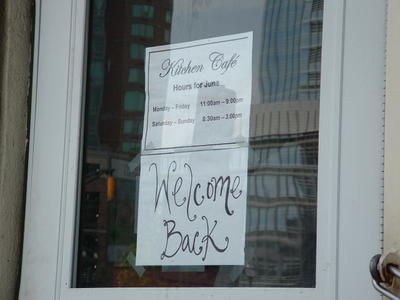 Kitchen Café
Hours for June
Monday – Friday 11:00am – 9:00pm
Saturday – Sunday 8:30am – 3:00pm
Welcome
Back